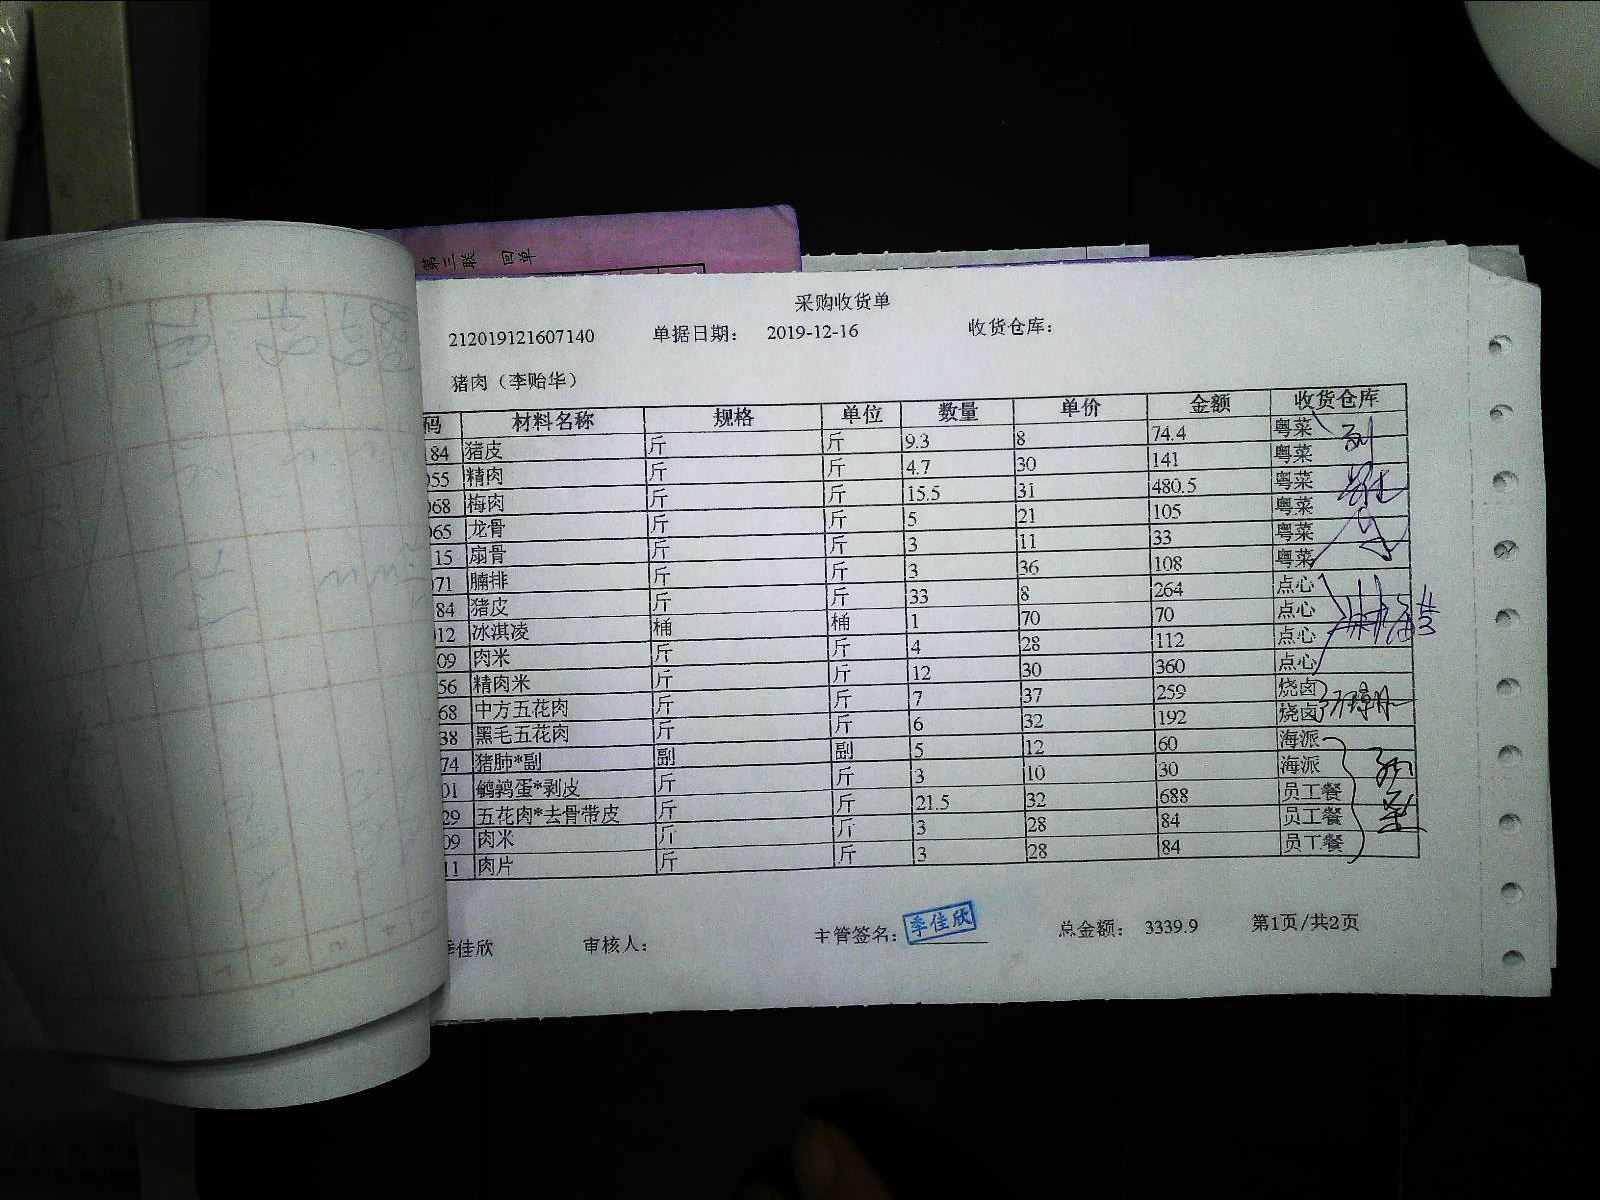 第三联 回单
采购收货单
212019121607140 单据日期： 2019-12-16 收货仓库：
猪肉（李贻华）
码 材料名称 规格 单位 数量 单价 金额 收货仓库
184 猪皮 斤 斤 9.3 8 74.4 粤菜
055 精肉 斤 斤 4.7 30 141 粤菜
068 梅肉 斤 斤 15.5 31 480.5 粤菜
065 龙骨 斤 斤 5 21 105 粤菜
15 扇骨 斤 斤 3 11 33 粤菜
071 腩排 斤 斤 3 36 108 粤菜
84 猪皮 斤 斤 33 8 264 点心
012 冰淇凌 桶 桶 1 70 70 点心
09 肉米 斤 斤 4 28 112 点心
56 精肉米 斤 斤 12 30 360 点心
68 中方五花肉 斤 斤 7 37 259 烧卤
38 黑毛五花肉 斤 斤 6 32 192 烧卤
74 猪肺*副 副 副 5 12 60 海派
01 鹌鹑蛋*剥皮 斤 斤 3 10 30 海派
29 五花肉*去骨带皮 斤 斤 21.5 32 688 员工餐
09 肉米 斤 斤 3 28 84 员工餐
11 肉片 斤 斤 3 28 84 员工餐
季佳欣 审核人： 主管签名： 季佳欣 总金额： 3339.9 第1页/共2页